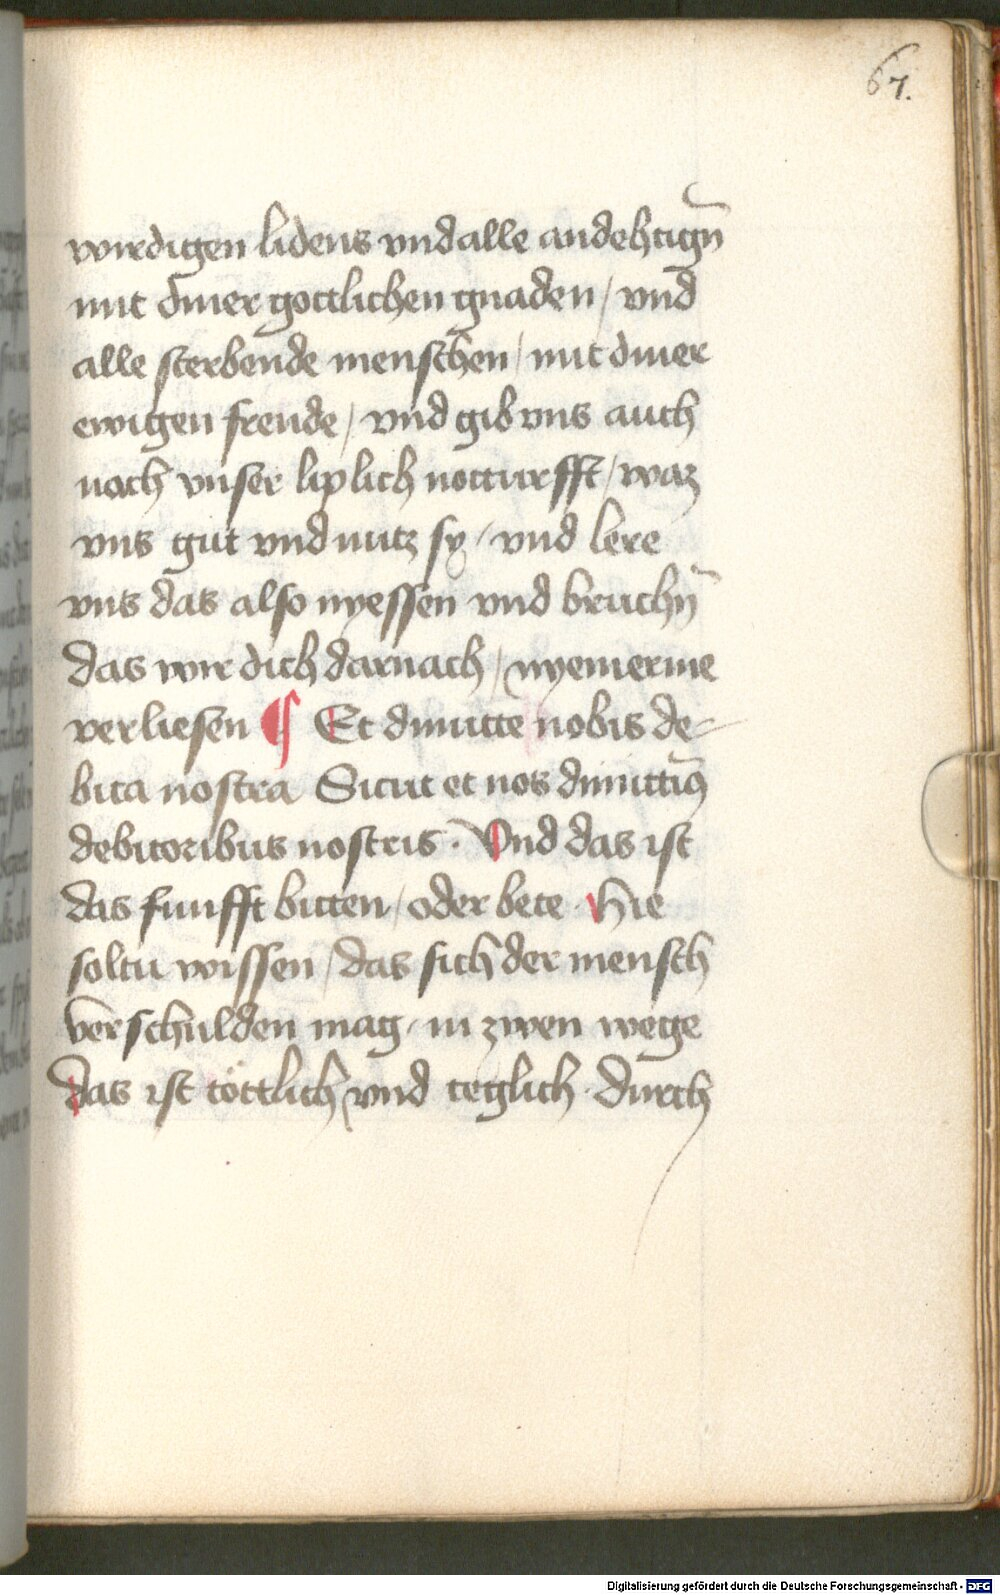 67.
wirdigen lidens vnd alle andehtign̄
mit diner gottlichen gnaden / vnd
alle sterbende menschen / mit diner
ewigen freude / vnd gib vns auch
nach vnser liplich notturfft / waz
vns gut vnd nutz sy / vnd lere
vns das also nyessen vnd bruchn̄
das wir dich darnach / nyemerme
verliesen ¶ Et dimitte nobis de-
bita nostra Sicut et nos dimittimꝰ
debitoribus nostris . Vnd das ist
das funfft bitten / oder bete . Hie
soltu wissen / das sich der mensch
verschulden mag / in zwen wege
das ist töttlich vnd teglich . durch
Digitalisierung gefördert durch die Deutsche Forschungsgemeinschaft - DFG